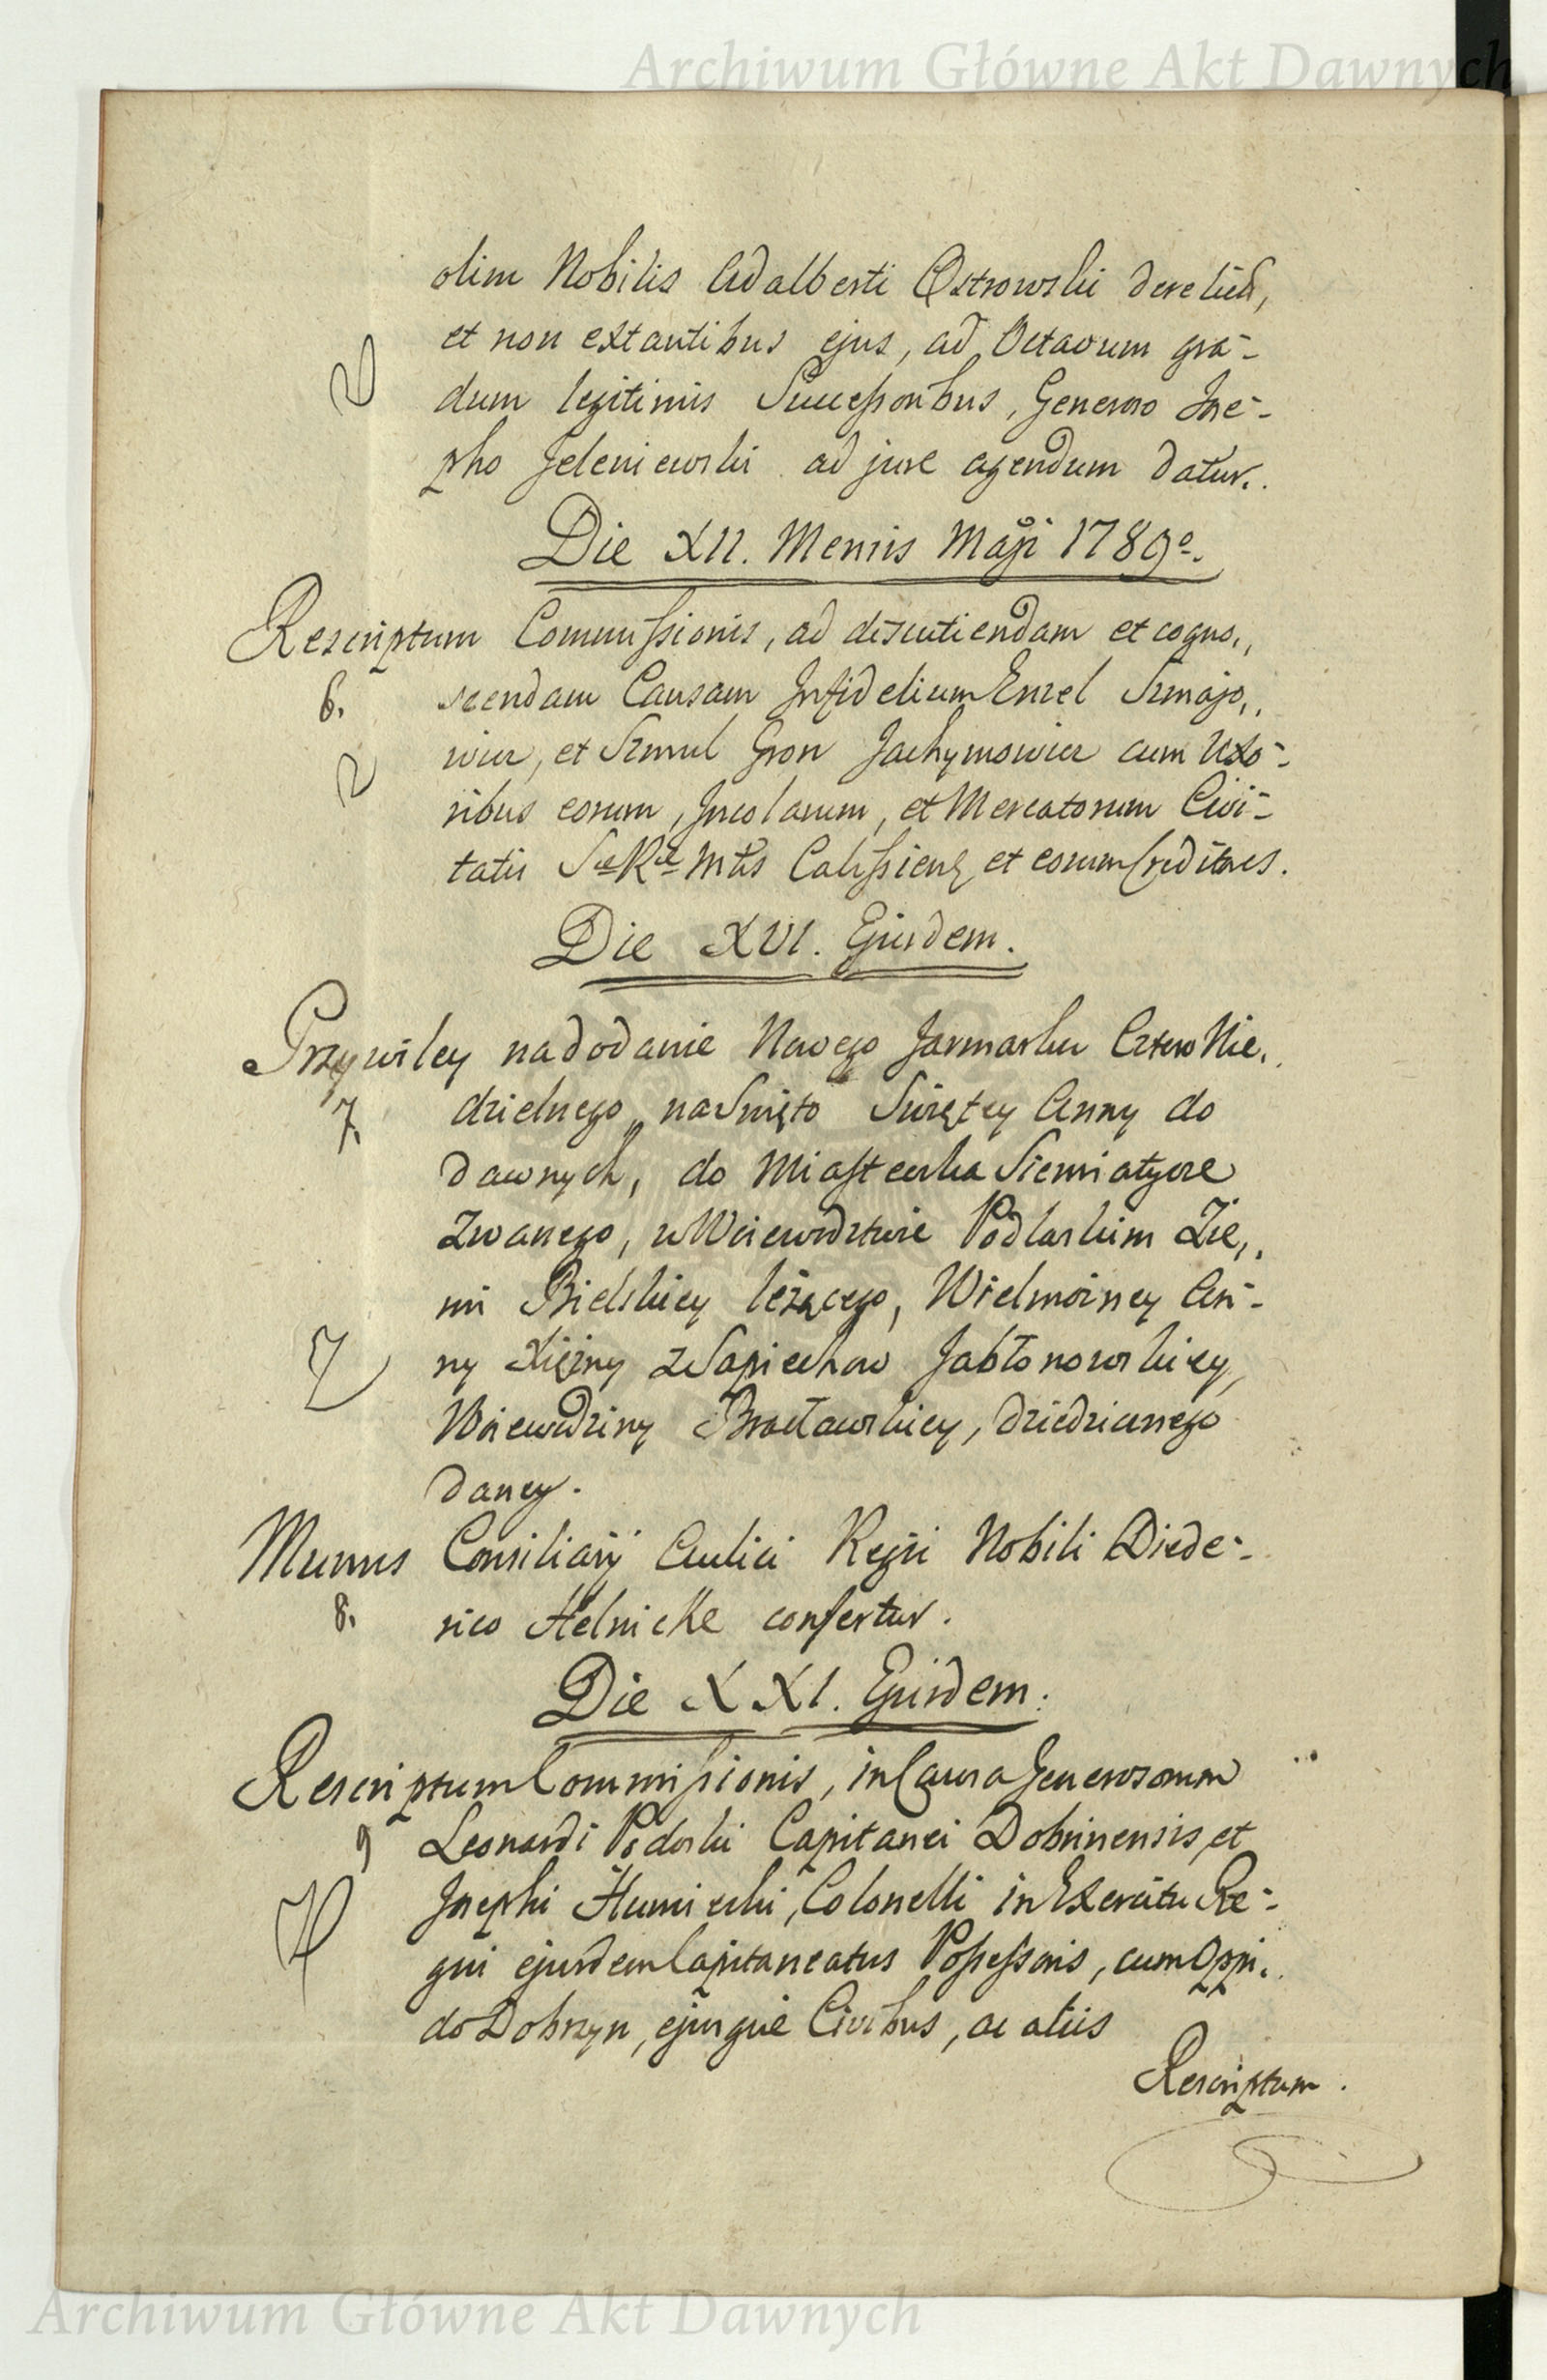 Archiwum Główne Akt Dawnych
olim Nobilis Adalberti Ostrowski derelicta,
et non extantibus ejus, ad Octavum gra-
dum legitimis Successoribus, Generoso Jose-
pho Jeleniewski ad jure agendum datur.
Die XII. Mensis Maji 1789o.
Rescriptum Commissionis, ad discutiendam et cogno,,
6. scendam Causam Infidelium Enzel Szmajo,,
wicz, et Szmul Gron Jachymowicz cum Uxo-
ribus eorum, Incolarum, et Mercatorum Civi-
tatis Sae Rae Mtis Calissiens et eorum Creditores.
Die XVI. Ejusdem.
Przywiley na dodanie Nowego Jarmarku Cztero Nie,,
7. dzielnego na Swięto Swiętey Anny do
dawnych, do Miasteczka Siemiatycze
Zwanego, w Woiewodztwie Podlaskim Zie,,
mi Bielskiey leżącego, Wielmożney An-
ny Xiężny z Sapiechow Jabłonowskiey,
Woiewodziny Bracławskiey, dziedzicznego
daney.
Munus Consiliarij Aulici Regii Nobili Diede-
8. rico Helnicke confertur.
Die XXI. Ejusdem.
Rescriptum Commissionis, in Causa Generosorum
9 Leonardi Podoski Capitanei Dobrinensis, et
Josephi Humiecki, Colonelli in Exercitu Re-
gni ejusdem Capitaneatus Possessoris, cum Oppi,,
do Dobrzyn, ejusque Civibus, ac aliis
Rescriptum.
Archiwum Główne Akt Dawnych